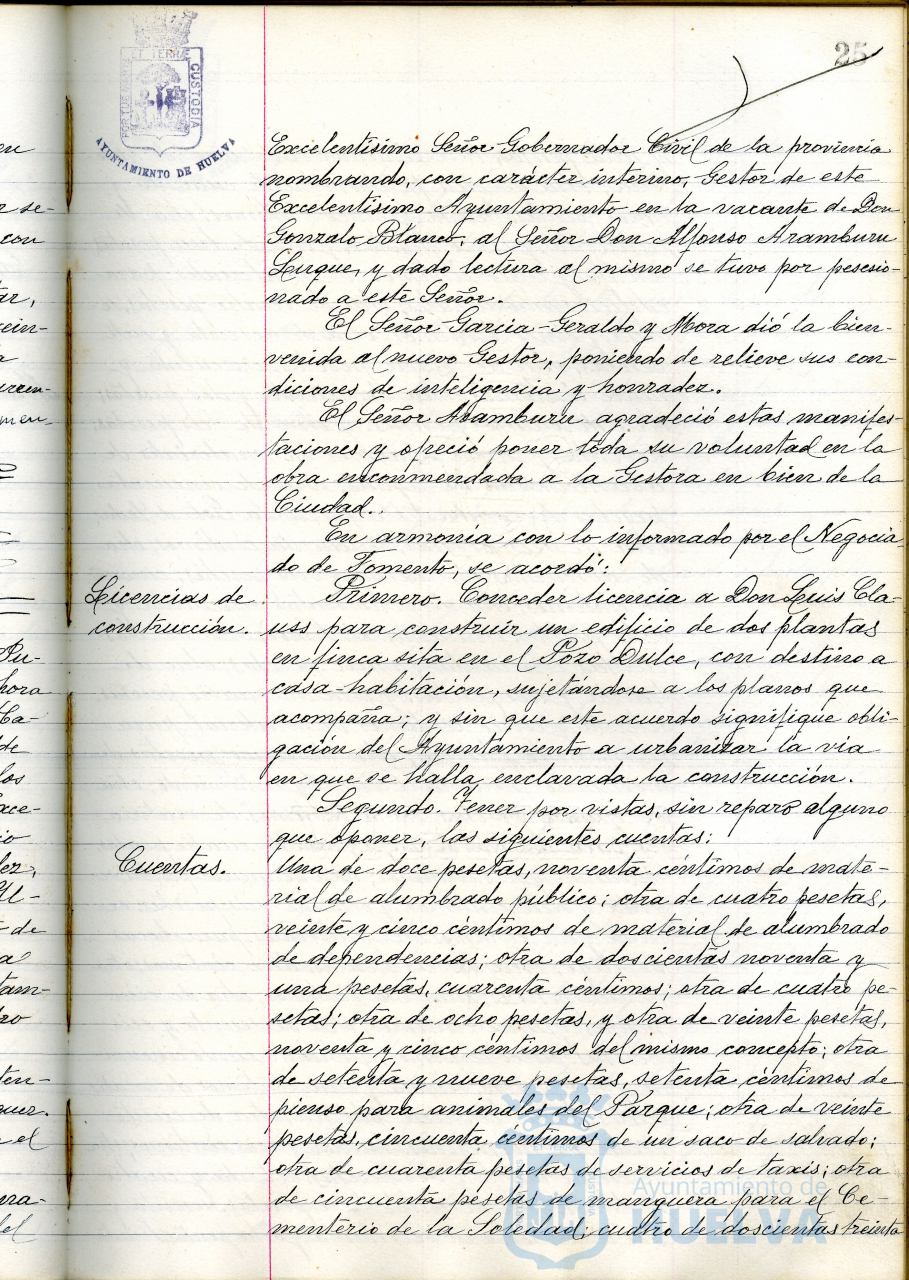 25
PORTUS MARIS ET TERRÆ CUSTODIA
AYUNTAMIENTO DE HUELVA
Excelentísimo Señor Gobernador Civil de la provincia
nombrando, con carácter interino, Gestor de este
Excelentísimo Ayuntamiento en la vacante de Don
Gonzalo Blanco, al Señor Don Alfonso Aramburu
Luque, y dado lectura al mismo se tuvo por pesesio-
nado a este Señor.
El Señor Garcia-Geraldo y Mora dió la bien-
venida al nuevo Gestor, poniendo de relieve sus con-
diciones de inteligencia y honradez.
El Señor Aramburu agradeció estas manifes-
taciones y ofreció poner toda su voluntad en la
obra enconmendada a la Gestora en bien de la
Ciudad.
En armonía con lo informado por el Negocia-
do de Fomento, se acordó:
Licencias de
construcción.
Primero. Conceder licencia a Don Luis Cla-
uss para construir un edificio de dos plantas
en finca sita en el Pozo Dulce, con destino a
casa-habitación, sujetándose a los planos que
acompaña; y sin que este acuerdo signifique obli-
gación del Ayuntamiento a urbanizar la via
en que se halla enclavada la construcción.
Segundo. Tener por vistas, sin reparo alguno
que oponer, las siguientes cuentas:
Cuentas.
Una de doce pesetas, noventa céntimos de mate-
rial de alumbrado público; otra de cuatro pesetas,
veinte y cinco céntimos de material de alumbrado
de dependencias; otra de doscientas noventa y
una pesetas, cuarenta céntimos; otra de cuatro pe-
setas; otra de ocho pesetas, y otra de veinte pesetas,
noventa y cinco céntimos del mismo concepto; otra
de setenta y nueve pesetas, setenta céntimos de
pienso para animales del Parque; otra de veinte
pesetas, cincuenta céntimos de un saco de salvado;
otra de cuarenta pesetas de servicios de taxis; otra
de cincuenta pesetas de manguera para el Ce-
menterio de la Soledad; cuatro de doscientas treinta
Ayuntamiento de
HUELVA